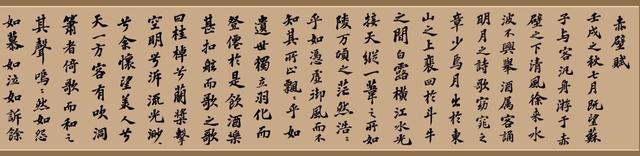 赤壁賦
壬戌之秋七月既望蘇
子与客汎舟游于赤
壁之下清風徐来水
波不興舉酒属客誦
明月之詩歌窈窕之
章少焉月出於東
山之上裵回於斗牛
之間白露横江水光
接天縱一葦之所如
陵万頃之茫然浩〻
乎如馮虚御風而不
知其所止飄〻乎如
遺世獨立羽化而
登僊於是飲酒樂
甚扣舷而歌之歌
曰桂棹兮蘭槳擊
空明兮泝流光渺〻
兮余懷望美人兮
天一方客有吹洞
簫者倚歌而和之
其聲嗚〻然如怨
如慕如泣如訴餘